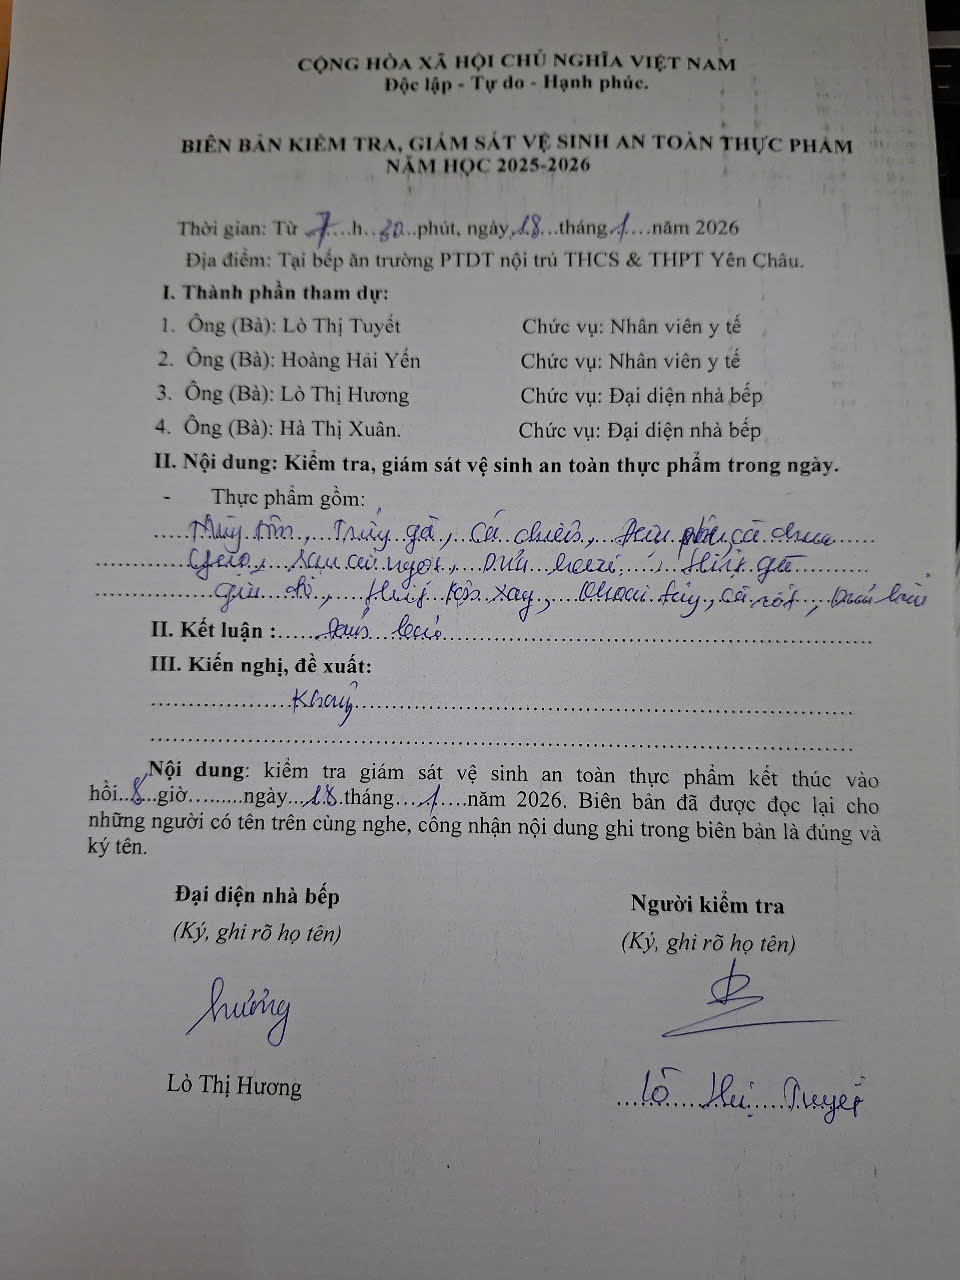 CỘNG HÒA XÃ HỘI CHỦ NGHĨA VIỆT NAM
Độc lập - Tự do - Hạnh phúc.
BIÊN BẢN KIỂM TRA, GIÁM SÁT VỆ SINH AN TOÀN THỰC PHẨM
NĂM HỌC 2025-2026
Thời gian: Từ 7 h phút, ngày 18 tháng 1 năm 2026
Địa điểm: Tại bếp ăn trường PTDT nội trú THCS & THPT Yên Châu.
I. Thành phần tham dự:
1. Ông (Bà): Lò Thị Tuyết Chức vụ: Nhân viên y tế
2. Ông (Bà): Hoàng Hải Yến Chức vụ: Nhân viên y tế
3. Ông (Bà): Lò Thị Hương Chức vụ: Đại diện nhà bếp
4. Ông (Bà): Hà Thị Xuân. Chức vụ: Đại diện nhà bếp
II. Nội dung: Kiểm tra, giám sát vệ sinh an toàn thực phẩm trong ngày.
- Thực phẩm gồm:
Trứng gà, Cá, Đậu phụ, cà chua
ngọt, thịt gà
giá đỗ, thịt lợn xay, khoai tây, cà rốt,
II. Kết luận :
III. Kiến nghị, đề xuất:
Không
Nội dung: kiểm tra giám sát vệ sinh an toàn thực phẩm kết thúc vào
hồi 8 giờ ngày 18 tháng 1 năm 2026. Biên bản đã được đọc lại cho
những người có tên trên cùng nghe, công nhận nội dung ghi trong biên bản là đúng và
ký tên.
Đại diện nhà bếp Người kiểm tra
(Ký, ghi rõ họ tên) (Ký, ghi rõ họ tên)
Hương
Lò Thị Hương Lò Thị Tuyết